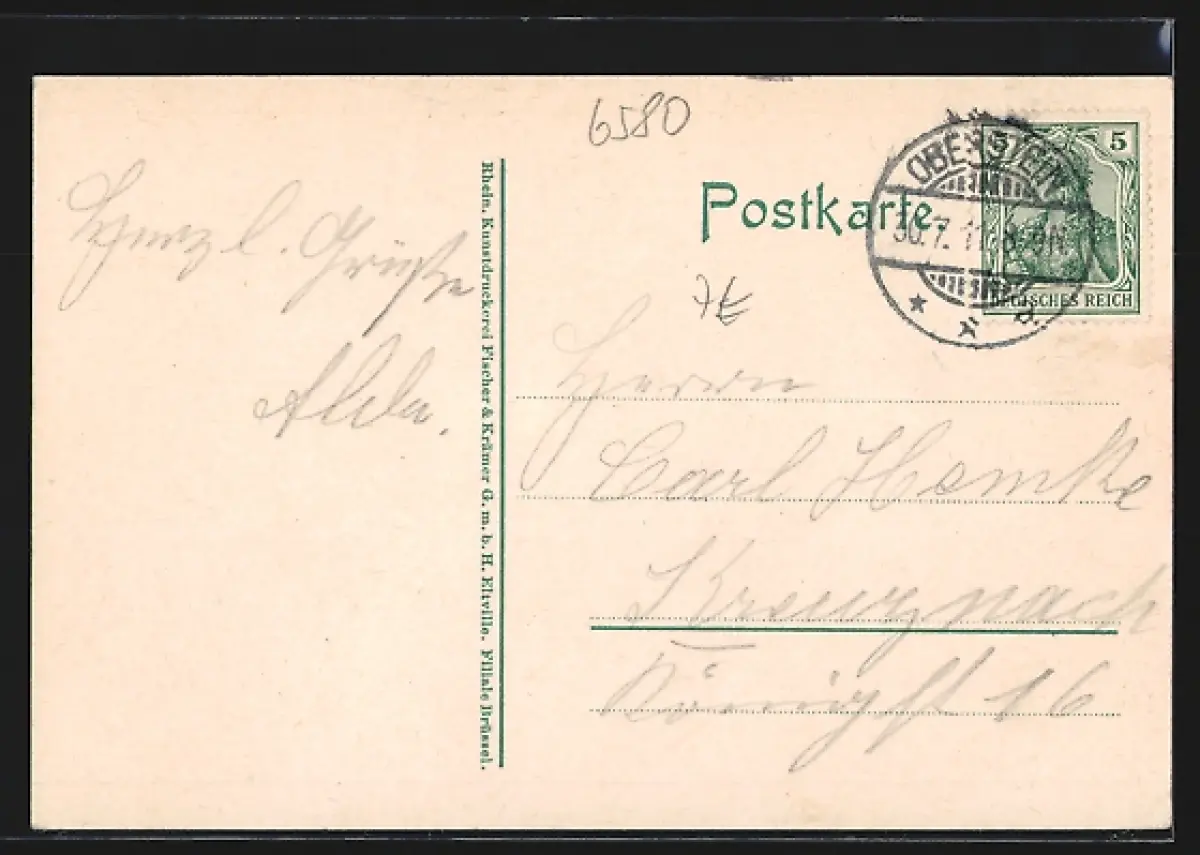 6580
Postkarte.
OBERSTEIN
30.7.11. 8-9N
5
DEUTSCHES REICH
Herzl. Grüße
Rhein. Kunstdruckerei Fischer & Krämer G. m. b. H. Eltville. Filiale Brüssel.
Herrn
Carl
Kreuznach
16